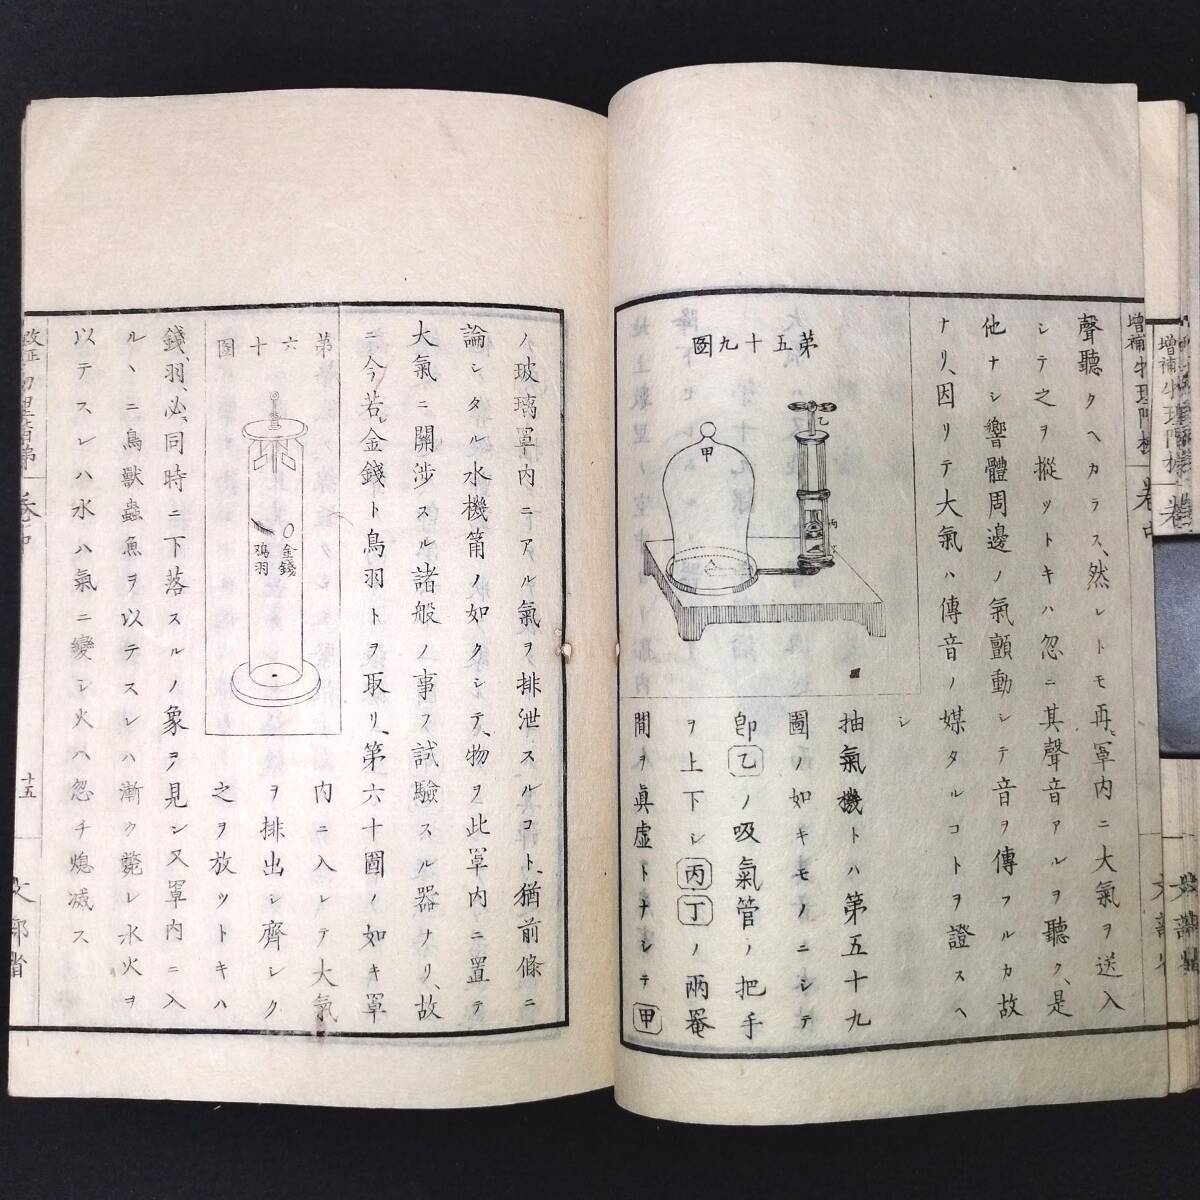 聲聽クヘカラス、然レトモ再ヒ罩内ニ大氣ヲ送入
シテ之ヲ搖ツトキハ忽ニ其聲音アルヲ聽ク、是
他ナシ響體周邊ノ氣顫動シテ音ヲ傳フルカ故
ナリ、因リテ大氣ハ傳音ノ媒タルコトヲ證スヘ
シ
第五十九圖
甲
乙
丙
抽氣機トハ第五十九
圖ノ如キモノニシテ
卽乙ノ吸氣管ノ把手
ヲ上下シ丙丁ノ兩罨
開ヲ眞虛トナシテ甲
ノ玻璃罩内ニアル氣ヲ排泄スルコト、猶前條ニ
論シタル水機筩ノ如クシテ、物ヲ此罩内ニ置テ
大氣ニ關涉スル諸般ノ事ヲ試驗スル器ナリ、故
ニ今若シ金錢ト鳥羽トヲ取リ、第六十圖ノ如キ罩
第六十圖
金錢
鴉羽
内ニ入レテ大氣
ヲ排出シ齊シク
之ヲ放ツトキハ
錢、羽、必ス同時ニ下落スルノ象ヲ見ン又罩内ニ入
ルヽニ鳥獸蟲魚ヲ以テスレハ漸ク斃レ水火ヲ
以テスレハ水ハ氣ニ變シ火ハ忽チ熄滅ス
改正物理階梯
卷中
十五
文部省
增補物理階梯
卷中